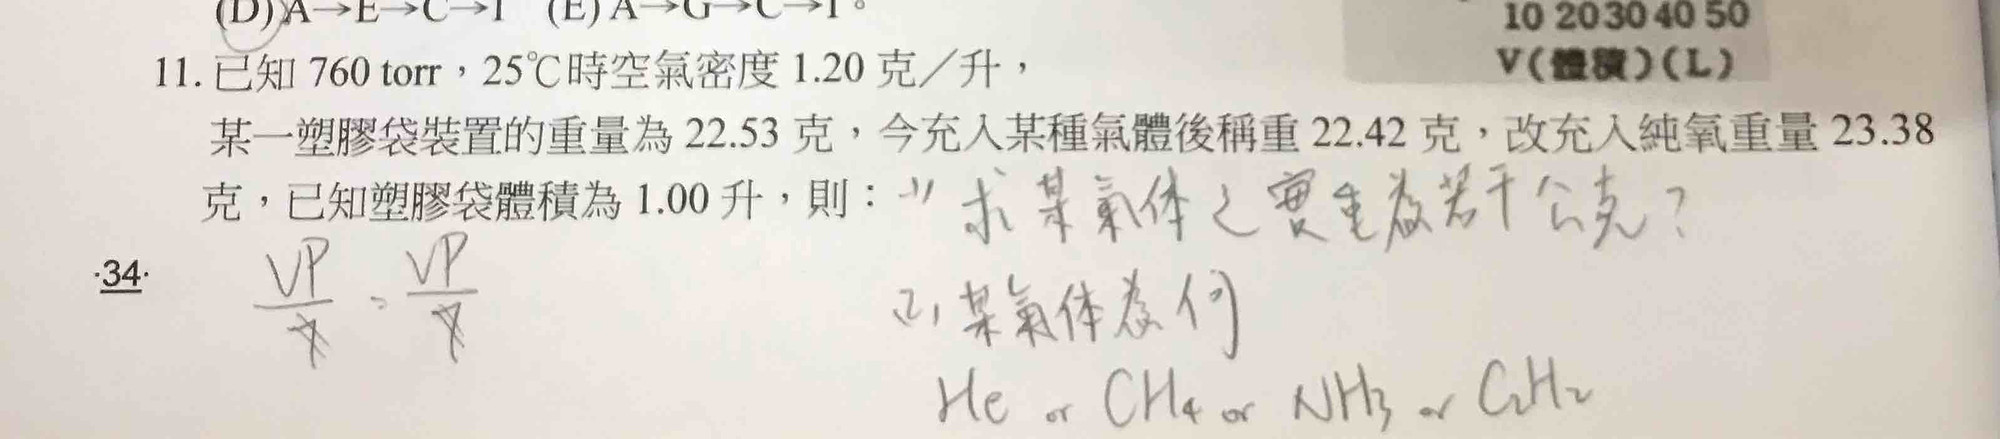 (D) A→E→C→I (E) A→G→C→I。
10 20 30 40 50
V(體積)(L)
11. 已知 760 torr，25℃時空氣密度 1.20 克／升，
某一塑膠袋裝置的重量為 22.53 克，今充入某種氣體後稱重 22.42 克，改充入純氧重量 23.38
克，已知塑膠袋體積為 1.00 升，則：(1) 求某氣体之實重為若干公克？
·34·
VP VP
(2) 某氣体為何
He or CH4 or NH3 or C2H2